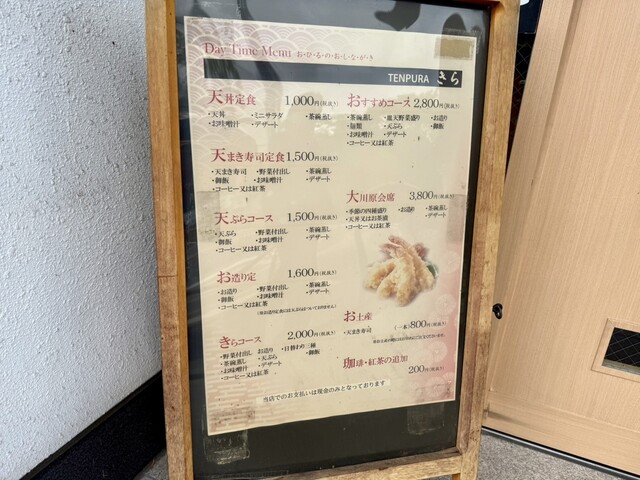 Day Time Menu お・ひ・る・の・お・し・な・が・き
TENPURA きら
天丼定食 1,000円(税抜き)
・天丼 ・ミニサラダ ・茶碗蒸し
・お味噌汁 ・デザート
天まき寿司定食 1,500円(税抜き)
・天まき寿司 ・野菜付出し ・茶碗蒸し
・御飯 ・お味噌汁 ・デザート
・コーヒー又は紅茶
天ぷらコース 1,500円(税抜き)
・天ぷら ・野菜付出し ・茶碗蒸し
・御飯 ・お味噌汁 ・デザート
・コーヒー又は紅茶
お造り定 1,600円(税抜き)
・お造り ・野菜付出し ・茶碗蒸し
・御飯 ・お味噌汁 ・デザート
・コーヒー又は紅茶
きらコース 2,000円(税抜き)
・野菜付出し ・お造り ・日替わり二種
・茶碗蒸し ・天ぷら ・御飯
・お味噌汁 ・デザート
・コーヒー又は紅茶
おすすめコース 2,800円(税抜き)
・茶碗蒸し ・鹿天野菜盛り ・お造り
・麺類 ・天ぷら ・御飯
・お味噌汁 ・デザート
・コーヒー又は紅茶
大川原会席 3,800円(税抜き)
・季節の四種盛り ・お造り ・茶碗蒸し
・天丼又はお茶漬 ・デザート
・コーヒー又は紅茶
お土産
・天まき寿司 (一本)800円(税抜き)
珈琲・紅茶の追加
200円(税抜き)
当店でのお支払いは現金のみとなっております